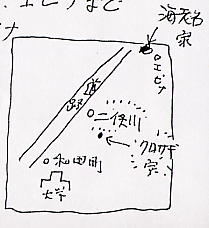 、エビナなど
海老名
家
エビナ
道
路
二俣川
クロサギ
家
和田町
大学